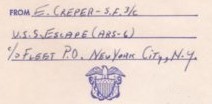 FROM E. CREPER - S.F. 3/c
U.S.S. ESCAPE (ARS-6)
c/o FLEET P.O. NEW YORK CITY, N.Y.